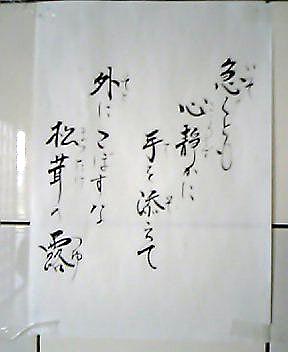 急ぐとも
心静かに
手を添えて
外にこぼすな
松茸の露